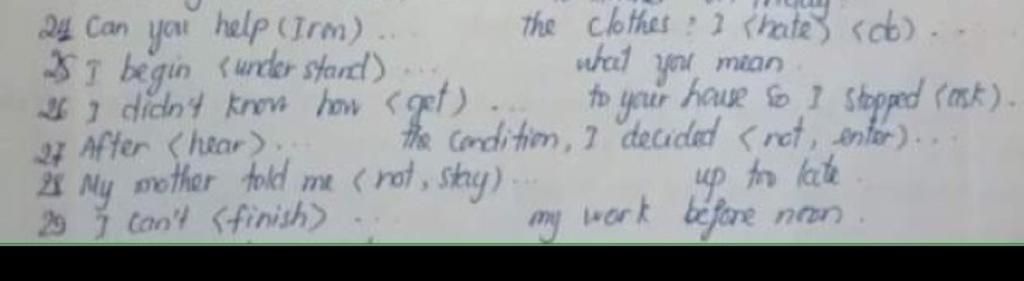 24 Can you help (Iron) .. the clothes : I (hate) (do) . . .
25 I begin (understand) ... what you mean .
26 I didn't know how (get) ... to your house so I stopped (ask) .
27 After (hear) ... the condition, I decided (not, enter) ...
28 My mother told me (not, stay) ... up too late .
29 I can't (finish) ... my work before noon .